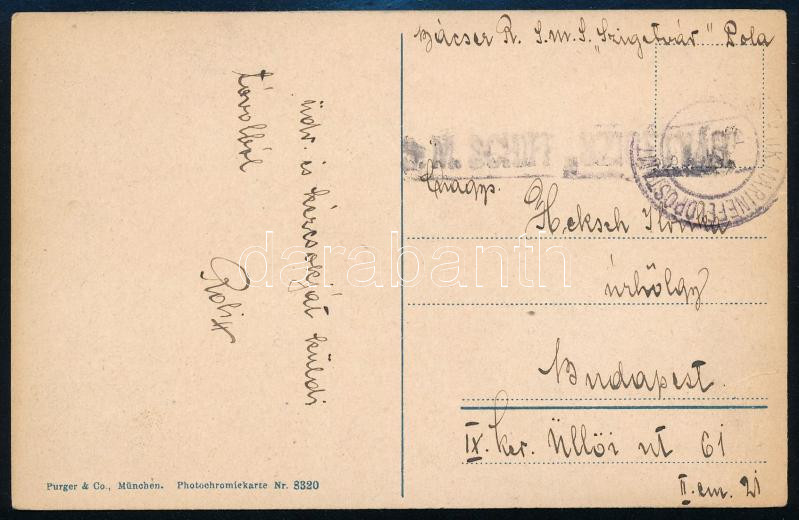 Bácser R. S.M.S. „Szigetvár" Pola
MARINEFELDPOSTAMT
Nagys.
Heksch Ilonka
úrhölgy
Budapest.
IX. ker. Üllői út 61
II. em. 21
üdv. és kézcsókját küldi
távolból
Robi
darabanth
Purger & Co., München. Photochromiekarte Nr. 8320